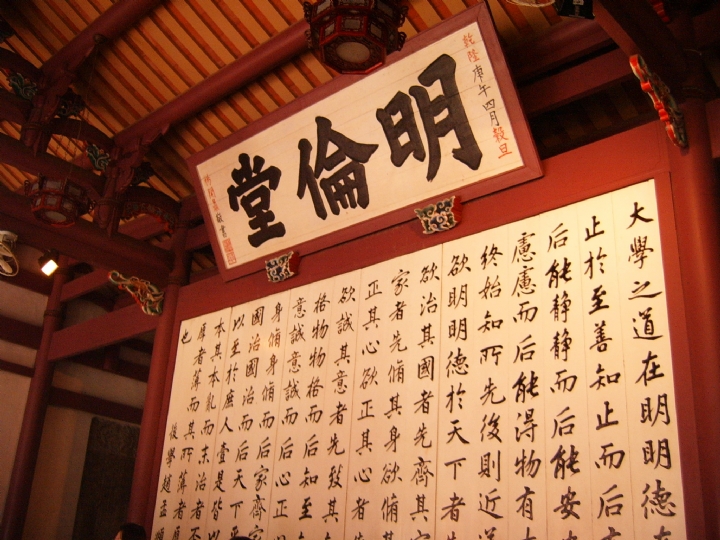 乾隆庚午四月穀旦
明倫堂
敬書
大學之道在明明德在
止於至善知止而后有
后能静静而后能安
慮慮而后能得物有本
終始知所先後則近道
欲明明德於天下者先
欲治其國者先齊其
家者先脩其身欲脩其
正其心欲正其心者先
欲誠其意者先致其
格物物格而后知
意誠意誠而后心正
身脩身脩而后家齊家
國治國治而后天下平
以至於庶人壹是皆以
本其本乱而末治者不
厚者薄而其所薄者厚
也
後學趙孟